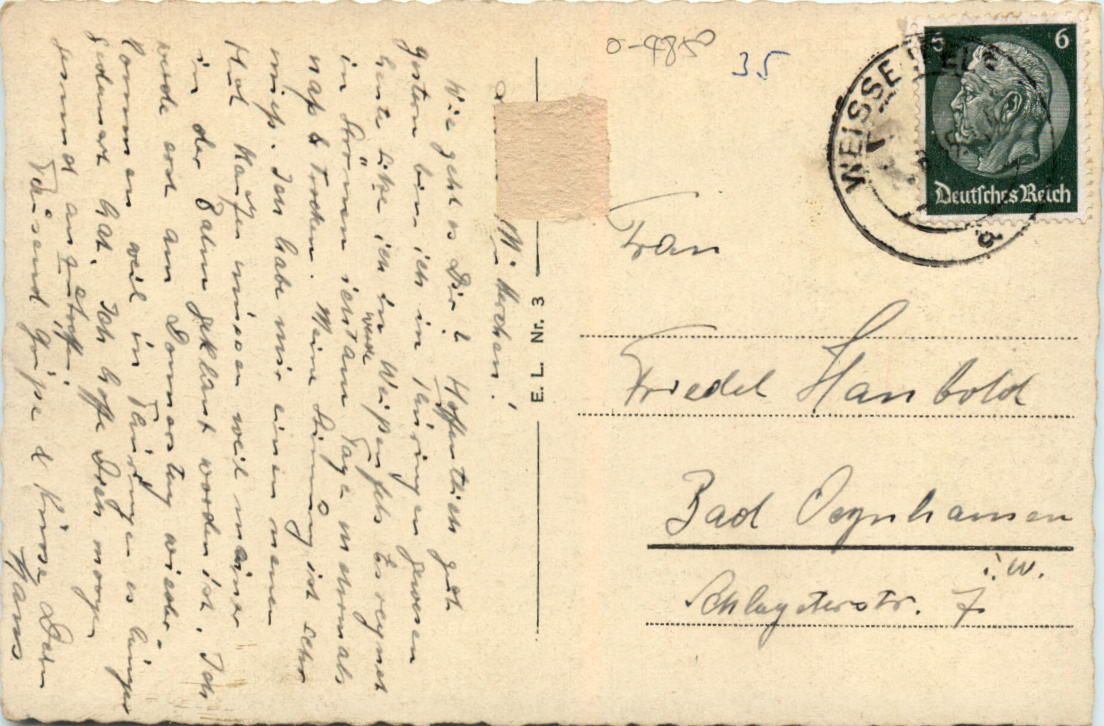 0-4850
35
WEISSENFELS
6 6
Deutsches Reich
Frau
Friedel Haubold
Bad Oeynhausen
i.W.
Schlageterstr. 7
E. L. Nr. 3
Wie geht es Dir? Hoffentlich gut
gestern bin ich in Thüringen gewesen
heute sitze ich in Weißenfels Es regnet
in Strömen ich werde am Tage mehrmals
naß & trocken. Meine Stimmung ist sehr
mieß. Ich habe mir einen neuen
Hut kaufen müssen weil meiner
in der Bahn geklaut worden ist. Ich
werde erst am Donnerstag wieder
kommen weil in Thüringen es länger
gedauert hat. Ich hoffe Dich morgen
gesund anzutreffen
Tausend Grüße & Küsse Dein
Hans